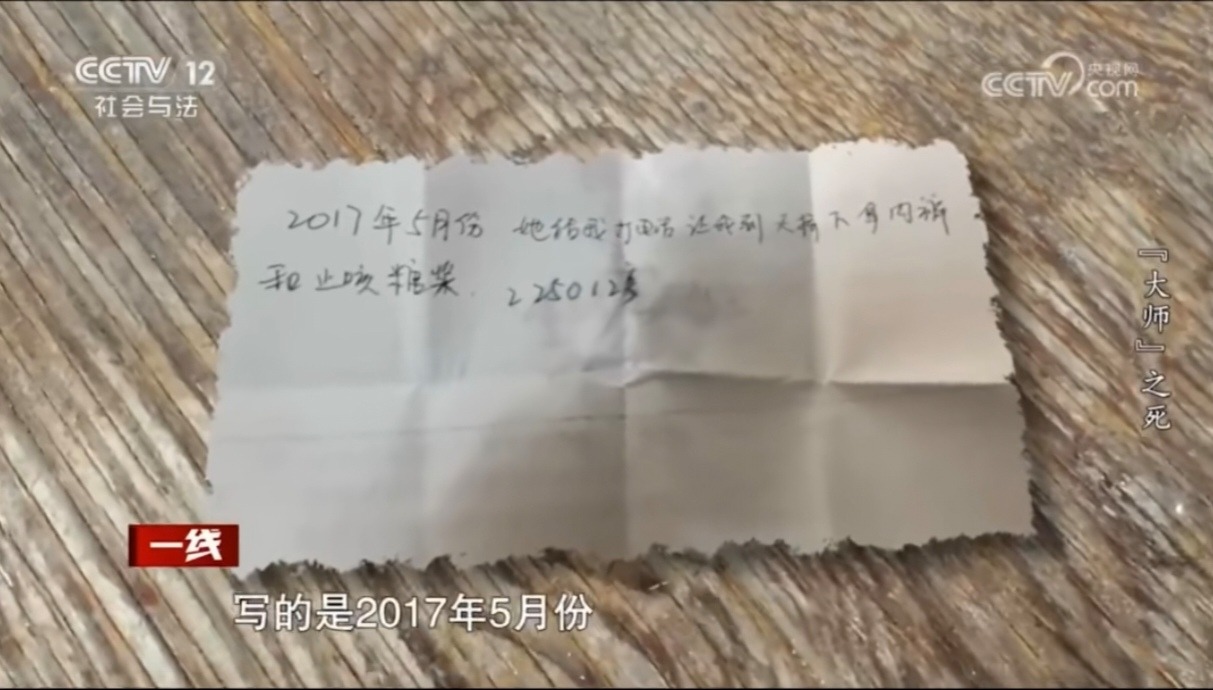 CCTV 12
社会与法
CCTV 央视网
com
2017年5月份 她给我打电话让我到天桥下拿内裤
和止咳糖浆. 225012
『大师』之死
一线
写的是2017年5月份